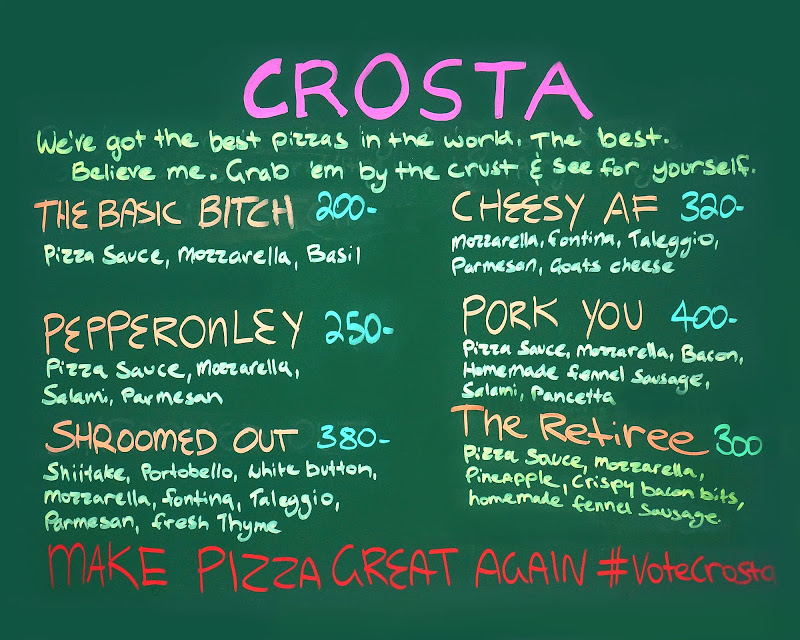 CROSTA
We've got the best pizzas in the world. The best.
Believe me. Grab 'em by the crust & see for yourself.
THE BASIC BITCH 200-
Pizza Sauce, Mozzarella, Basil
PEPPERONLEY 250-
Pizza Sauce, Mozzarella,
Salami, Parmesan
SHROOMED OUT 380-
Shiitake, Portobello, White button,
Mozzarella, fontina, Taleggio,
Parmesan, fresh Thyme
CHEESY AF 320-
Mozzarella, fontina, Taleggio,
Parmesan, Goats cheese
PORK YOU 400-
Pizza Sauce, Mozzarella, Bacon,
Homemade fennel Sausage,
Salami, Pancetta
The Retiree 300
Pizza Sauce, Mozzarella,
Pineapple, Crispy bacon bits,
homemade fennel Sausage.
MAKE PIZZA GREAT AGAIN #VoteCrosta